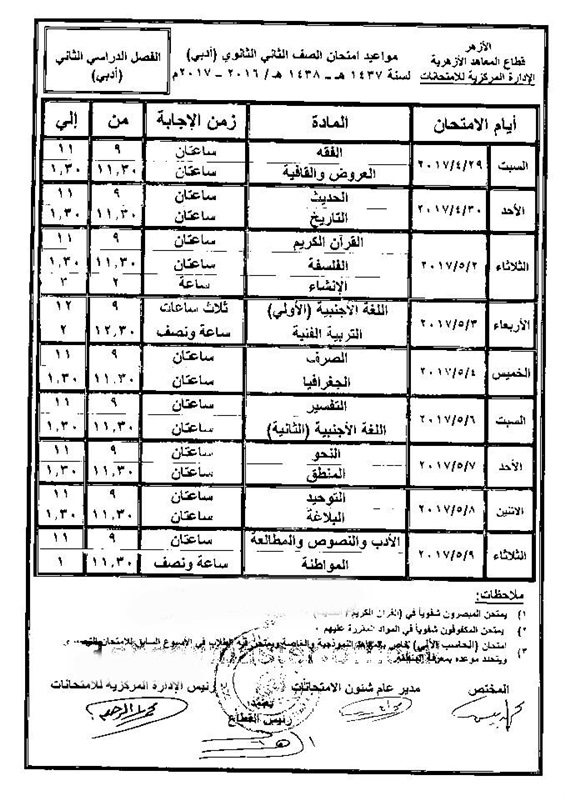 الأزهر
قطاع المعاهد الأزهرية
الإدارة المركزية للامتحانات
مواعيد امتحان الصف الثاني الثانوي (أدبي)
لسنة ١٤٣٧ هـ - ١٤٣٨ هـ / ٢٠١٦ - ٢٠١٧م
الفصل الدراسي الثاني
(أدبي)
أيام الامتحان المادة زمن الإجابة من إلي
السبت ٢٠١٧/٤/٢٩ الفقه ساعتان ٩ ١١
العروض والقافية ساعتان ١١,٣٠ ١,٣٠
الأحد ٢٠١٧/٤/٣٠ الحديث ساعتان ٩ ١١
التاريخ ساعتان ١١,٣٠ ١,٣٠
الثلاثاء ٢٠١٧/٥/٢ القرآن الكريم ساعتان ٩ ١١
الفلسفة ساعتان ١١,٣٠ ١,٣٠
الإنشاء ساعة ٢ ٣
الأربعاء ٢٠١٧/٥/٣ اللغة الأجنبية (الأولي) ثلاث ساعات ٩ ١٢
التربية الفنية ساعة ونصف ١٢,٣٠ ٢
الخميس ٢٠١٧/٥/٤ الصرف ساعتان ٩ ١١
الجغرافيا ساعتان ١١,٣٠ ١,٣٠
السبت ٢٠١٧/٥/٦ التفسير ساعتان ٩ ١١
اللغة الأجنبية (الثانية) ساعتان ١١,٣٠ ١,٣٠
الأحد ٢٠١٧/٥/٧ النحو ساعتان ٩ ١١
المنطق ساعتان ١١,٣٠ ١,٣٠
الاثنين ٢٠١٧/٥/٨ التوحيد ساعتان ٩ ١١
البلاغة ساعتان ١١,٣٠ ١,٣٠
الثلاثاء ٢٠١٧/٥/٩ الأدب والنصوص والمطالعة ساعتان ٩ ١١
المواطنة ساعة ونصف ١١,٣٠ ١
ملاحظات:
١) يمتحن المبصرون شفوياً في (القرآن الكريم
٢) يمتحن المكفوفون شفوياً في المواد المقررة عليهم .
٣) امتحان (الحاسب الآلي) خاص بالمعاهد النموذجية والخاصة ويمتحن فيه الطلاب في الأسبوع السابق للامتحان
ويتحدد موعده بمعرفة المنطقة
المختص مدير عام شئون الامتحانات رئيس الإدارة المركزية للامتحانات
يعتمد،
رئيس القطاع